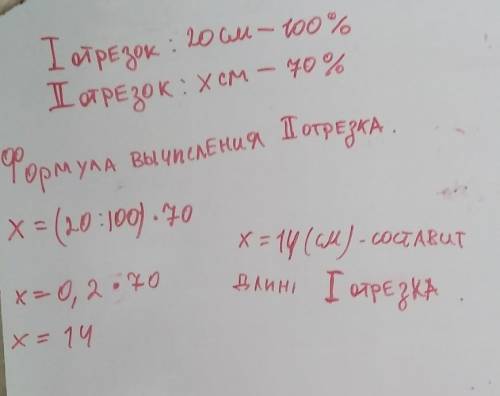 I отрезок: 20 см – 100%
II отрезок: x см – 70%
Формула вычисления II отрезка.
x = (20:100) · 70
x = 0,2 · 70
x = 14
x = 14 (см) - составит
длині I отрезка.